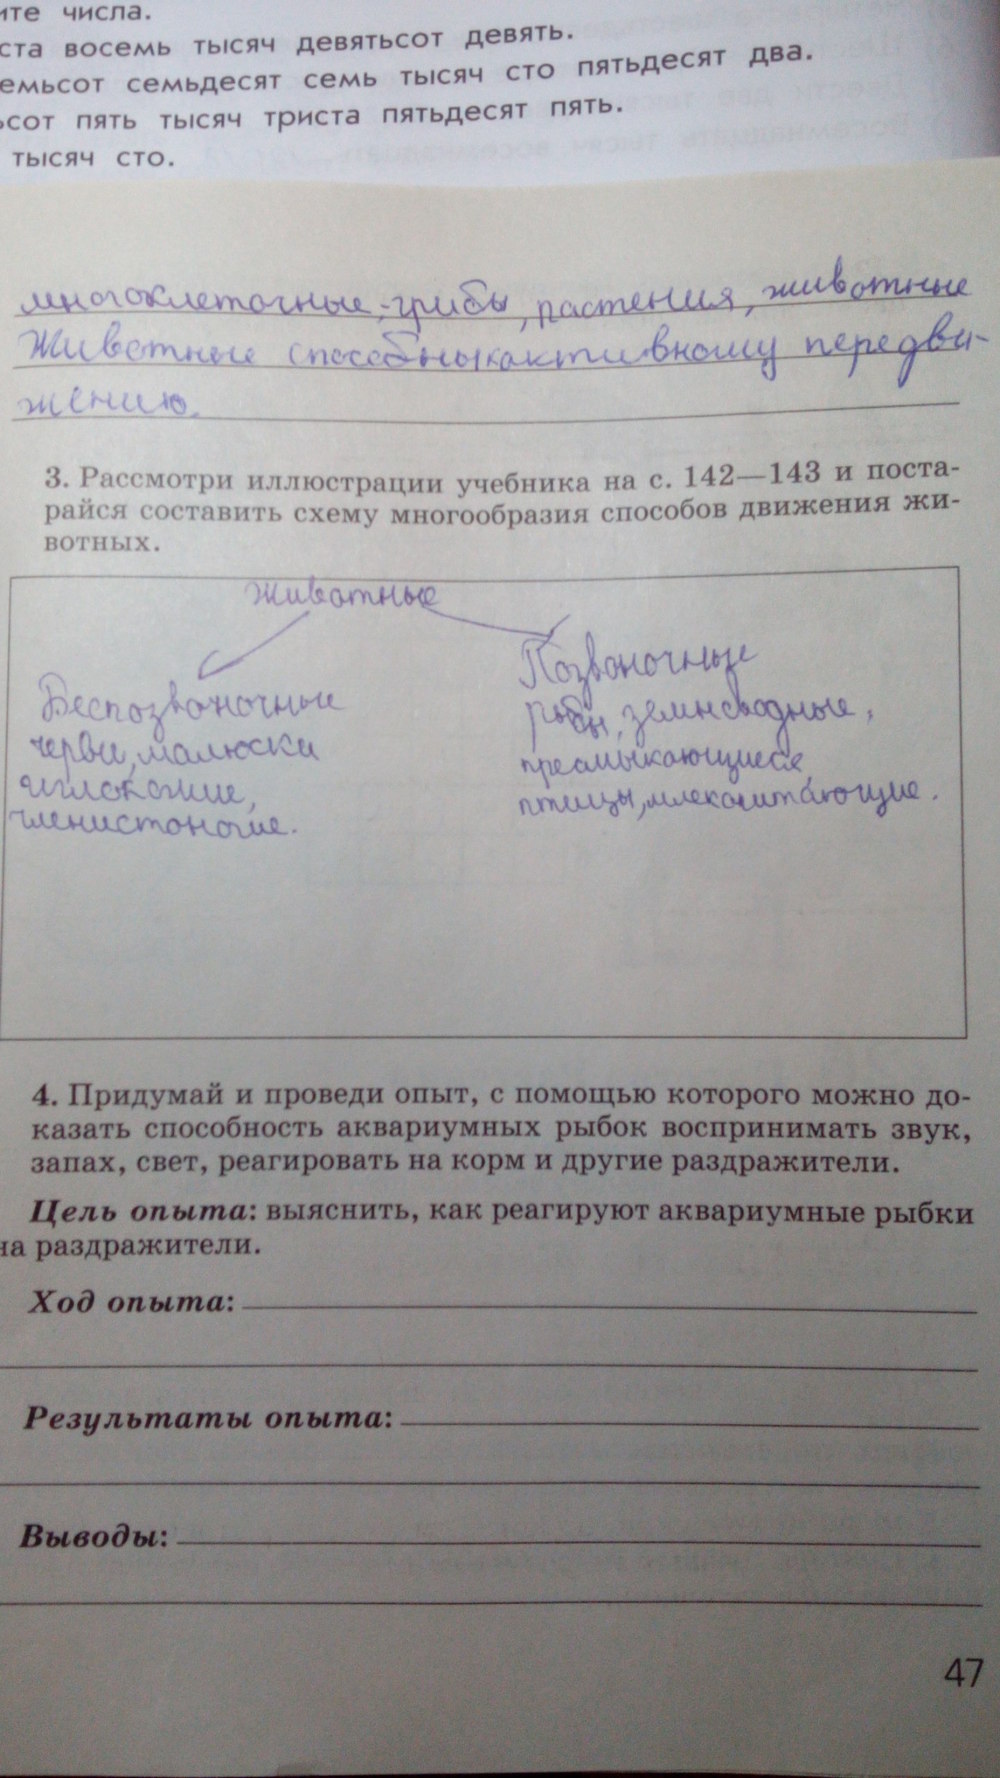 ите числа.
ста восемь тысяч девятьсот девять.
емьсот семьдесят семь тысяч сто пятьдесят два.
ьсот пять тысяч триста пятьдесят пять.
тысяч сто.
многоклеточные,-грибы, растения, животные
Животные способны к активному передви-
жению.
3. Рассмотри иллюстрации учебника на с. 142—143 и поста-
райся составить схему многообразия способов движения жи-
вотных.
животные
Беспозвоночные
черви, малюски
иглокожие,
членистоногие.
Позвоночные
рыбы, земноводные,
пресмыкающиеся
птицы, млекопитающие.
4. Придумай и проведи опыт, с помощью которого можно до-
казать способность аквариумных рыбок воспринимать звук,
запах, свет, реагировать на корм и другие раздражители.
Цель опыта: выяснить, как реагируют аквариумные рыбки
на раздражители.
Ход опыта:
Результаты опыта:
Выводы:
47